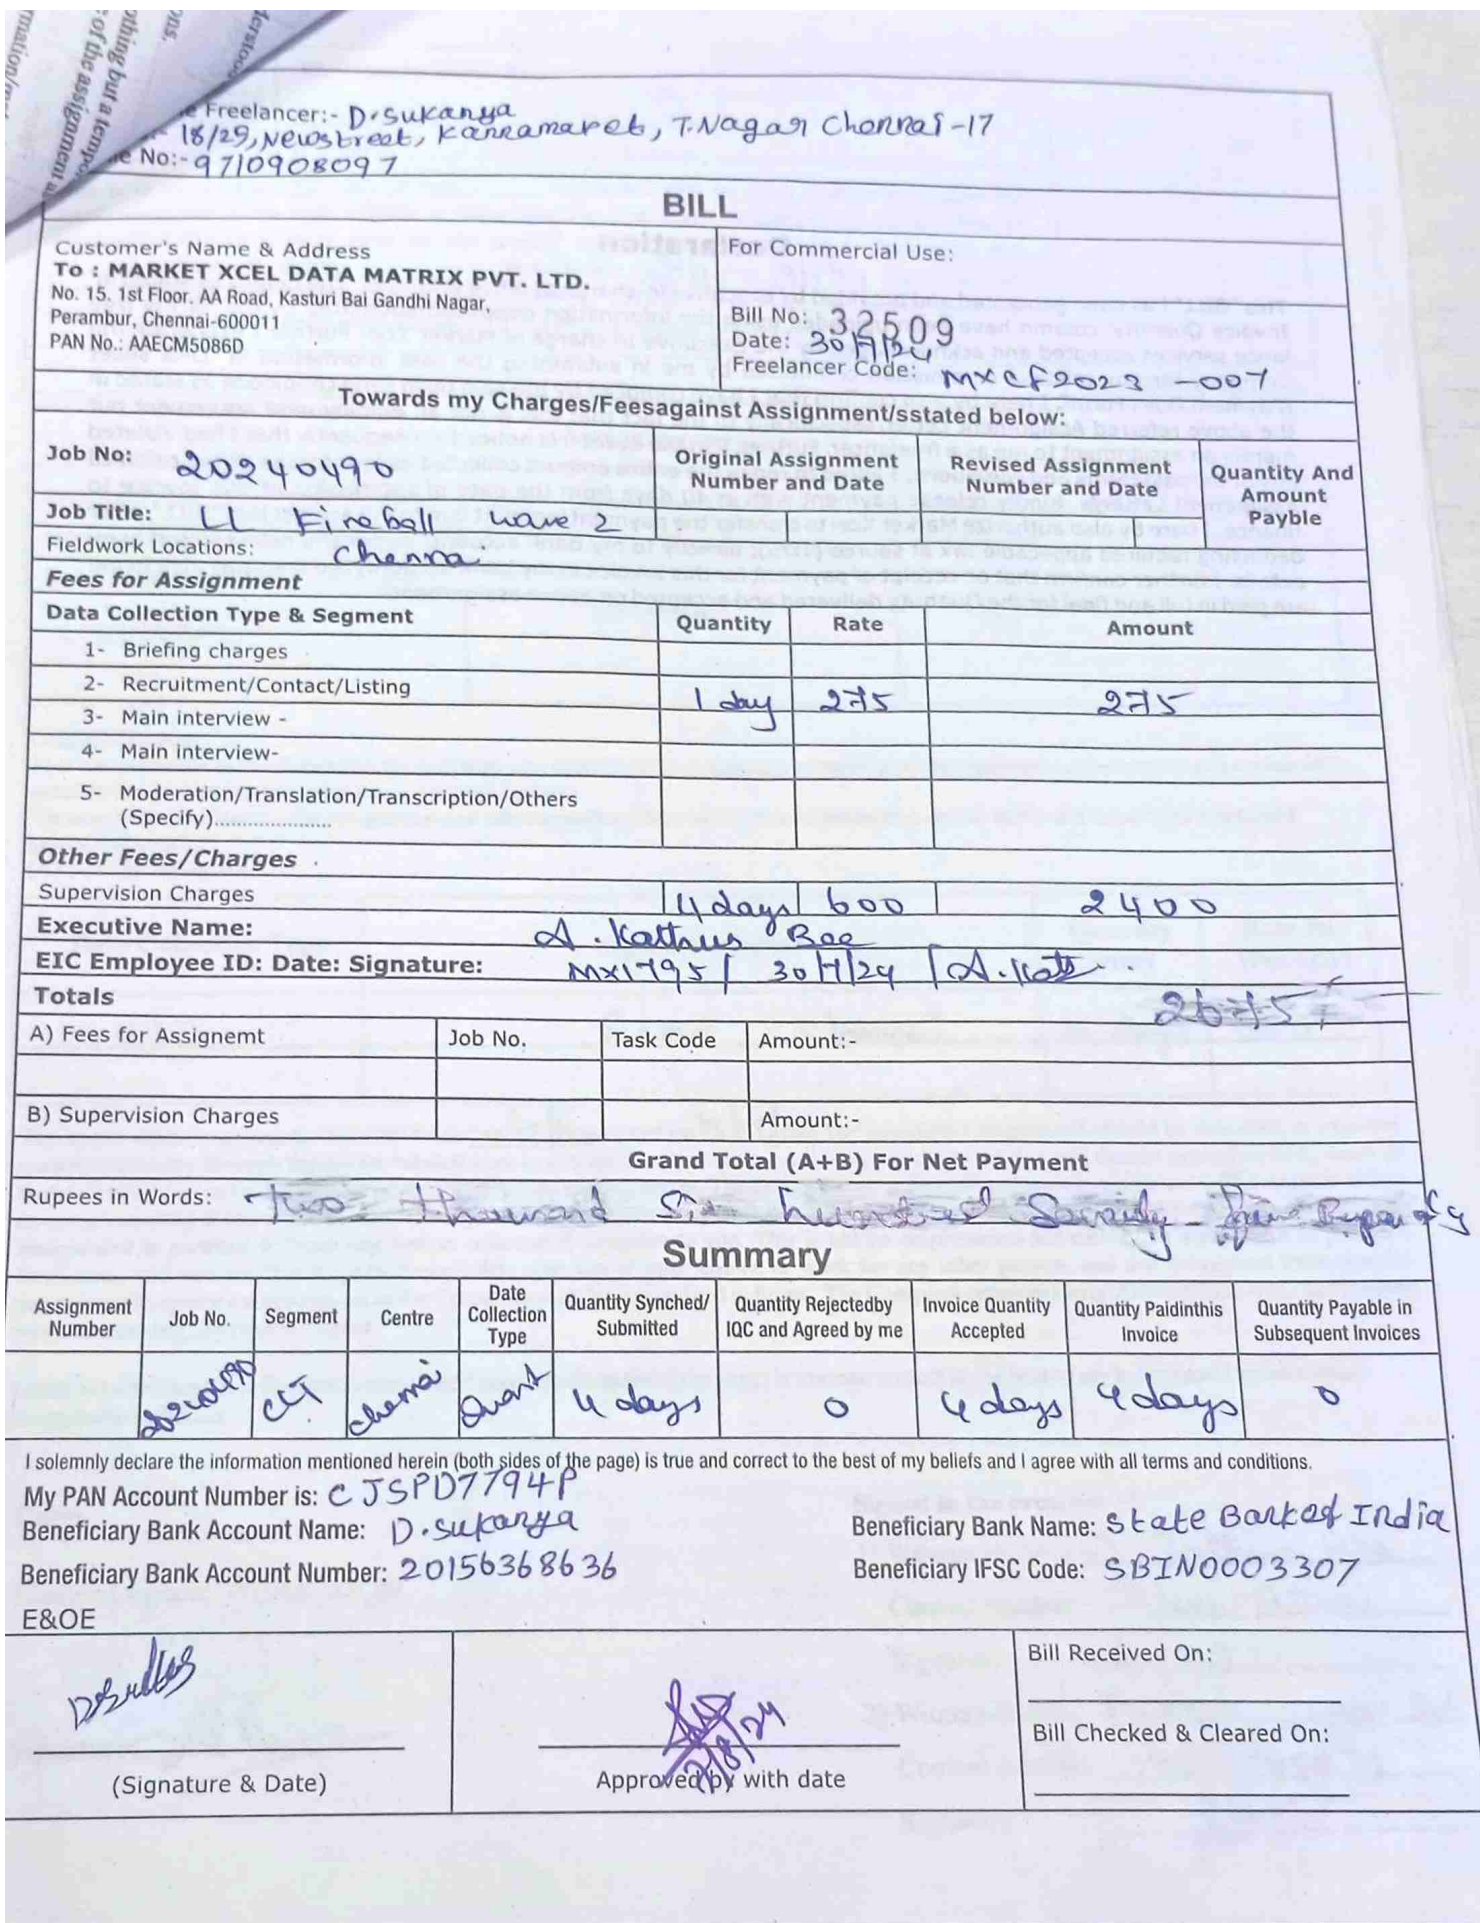 rmation/m
of the assignment a
othing but a tempo
ons.
derstoo
e Freelancer:- D.Sukanya
18/29, Newstreet, Kannamapet, T.Nagar Chennai-17
e No:- 9710908097
BILL
Customer's Name & Address
To : MARKET XCEL DATA MATRIX PVT. LTD.
No. 15, 1st Floor, AA Road, Kasturi Bai Gandhi Nagar,
Perambur, Chennai-600011
PAN No.: AAECM5086D
For Commercial Use:
Bill No: 32509
Date: 30/7/24
Freelancer Code: MXCF2023-007
Towards my Charges/Feesagainst Assignment/sstated below:
Job No: 20240490
Original Assignment Number and Date
Revised Assignment Number and Date
Quantity And Amount Payble
Job Title: LL Fireball wave 2
Fieldwork Locations: Chennai
Fees for Assignment
Data Collection Type & Segment Quantity Rate Amount
1- Briefing charges
2- Recruitment/Contact/Listing 1 day 275 275
3- Main interview -
4- Main interview-
5- Moderation/Translation/Transcription/Others
(Specify)......................
Other Fees/Charges
Supervision Charges 4 days 600 2400
Executive Name: A.
EIC Employee ID: Date: Signature: MX1795 / 30/7/24 /
Totals 2675
A) Fees for Assignemt Job No. Task Code Amount:-
B) Supervision Charges Amount:-
Grand Total (A+B) For Net Payment
Rupees in Words: Two thousand Six hundred Seventy five
Summary
Assignment Number Job No. Segment Centre Date Collection Type Quantity Synched/ Submitted Quantity Rejectedby IQC and Agreed by me Invoice Quantity Accepted Quantity Paidinthis Invoice Quantity Payable in Subsequent Invoices
20240490 CLT Chennai Quant 4 days 0 4 days 4 days 0
I solemnly declare the information mentioned herein (both sides of the page) is true and correct to the best of my beliefs and I agree with all terms and conditions.
My PAN Account Number is: CJSPD7794P
Beneficiary Bank Account Name: D.Sukanya
Beneficiary Bank Name: State Bank of India
Beneficiary Bank Account Number: 20156368636
Beneficiary IFSC Code: SBIN0003307
E&OE
(Signature & Date)
Approved by with date
Bill Received On:
Bill Checked & Cleared On: